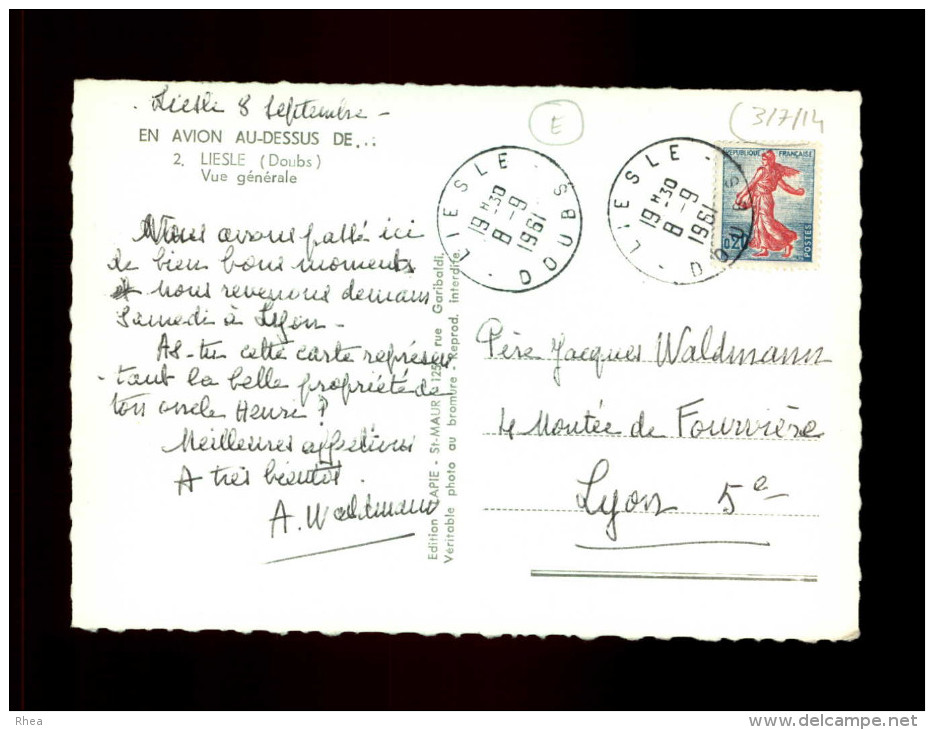 Liesle 8 Septembre -
EN AVION AU-DESSUS DE...
2. LIESLE (Doubs)
Vue générale
Nous avons passé ici
de bien bons moments
et nous revenons demain
Samedi à Lyon -
As-tu cette carte représen
-tant la belle propriété de
ton oncle Henri ?
Meilleures affections
A très bientôt.
A. Waldmann
Edition LAPIE - St-MAUR rue Garibaldi.
Véritable photo au bromure - Reprod. interdite.
E
3/7/14
LIESLE - DOUBS -
19 H 30
8 - 9
1961
LIESLE - DOUBS -
19 H 30
8 - 9
1961
REPUBLIQUE FRANÇAISE
0,20
POSTES
Père Jacques Waldmann
4 Montée de Fourvière
Lyon 5e
Rhea
www.delcampe.net